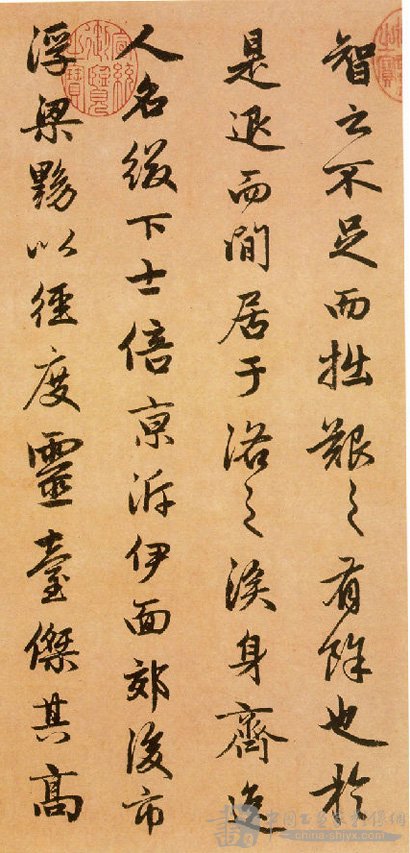 智之不足而拙艱之有餘也於
是退而閒居于洛之涘身齊逸
人名綴下士倍京泝伊面郊後市
浮梁黝以徑度靈臺傑其高
宣統御覽之寶